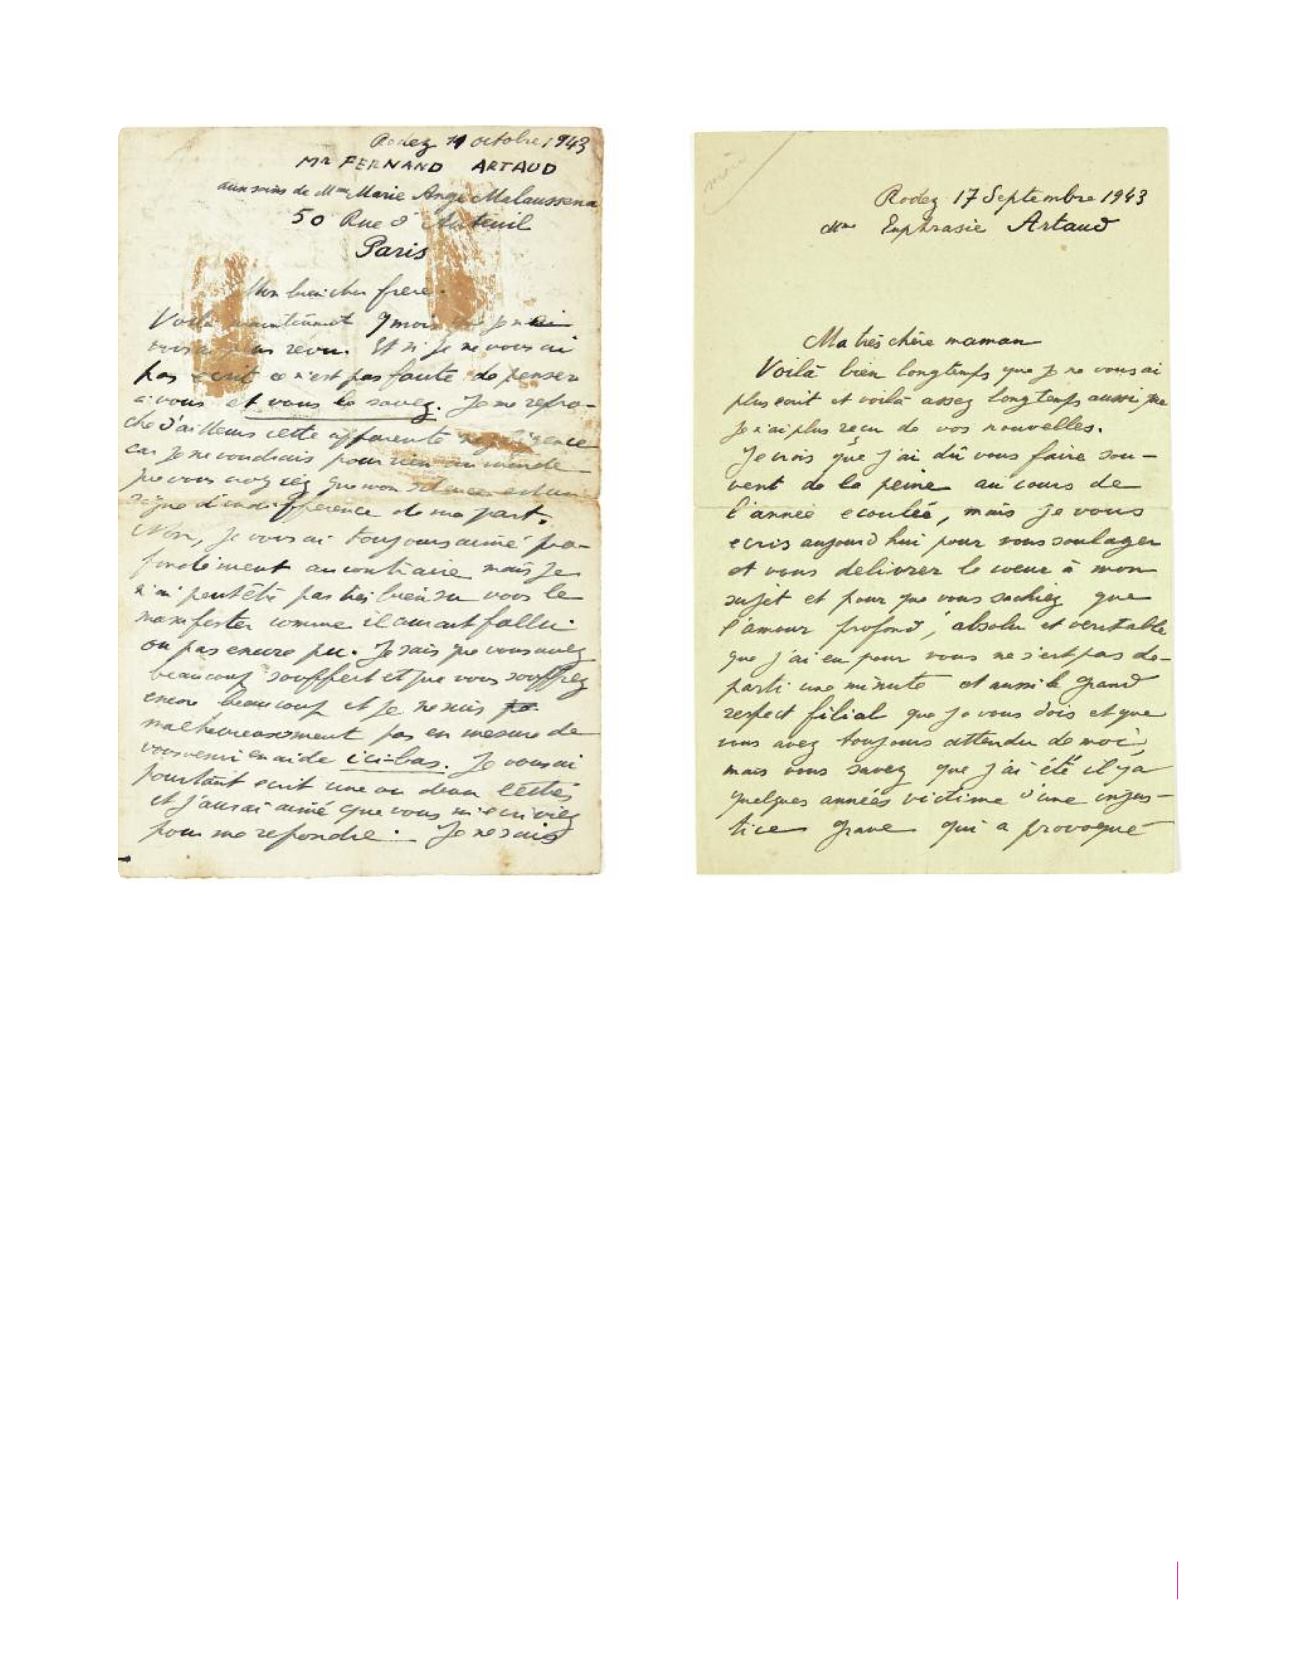 Rodez 11 octobre 1943
Mr FERNAND ARTAUD
aux soins de Mme Marie Ange Malaussena
50 Rue d'Auteuil
Paris
Mon bien cher frere.
Voilà maintenant 9 mois que je
vous ai plus revu. Et si je ne vous ai
pas ecrit ce n'est pas faute de penser
à vous et vous le savez. Je me repro-
che d'ailleurs cette apparente negligence
car je ne voudrais pour rien au monde
que vous croyiez que mon silence est un
signe d'indifference de ma part.
Non, je vous ai toujours aimé pro-
fondement au contraire mais je
n'ai peut être pas très bien su vous le
manifester comme il aurait fallu
ou pas encore pu. Je sais que vous avez
beaucoup souffert et que vous souffrez
encore beaucoup et je ne suis
malheureusement pas en mesure de
vous venir en aide ici-bas. Je vous ai
pourtant ecrit une ou deux lettres
et j'aurai aimé que vous m'ecriviez
pour me repondre. Je ne sais
Rodez 17 Septembre 1943
Mme Euphrasie Artaud
Ma très chère maman
Voilà bien longtemps que je ne vous ai
plus ecrit et voilà assez longtemps aussi que
je n'ai plus reçu de vos nouvelles.
Je crois que j'ai dû vous faire sou-
vent de la peine au cours de
l'année ecoulée, mais je vous
ecris aujourd'hui pour vous soulager
et vous delivrer le coeur à mon
sujet et pour que vous sachiez que
l'amour profond, absolu et veritable
que j'ai eu pour vous ne s'est pas de-
parti une minute et aussi le grand
respect filial que je vous dois et que
vous avez toujours attendu de moi,
mais vous savez que j'ai été il y a
quelques années victime d'une injus-
tice grave qui a provoqué